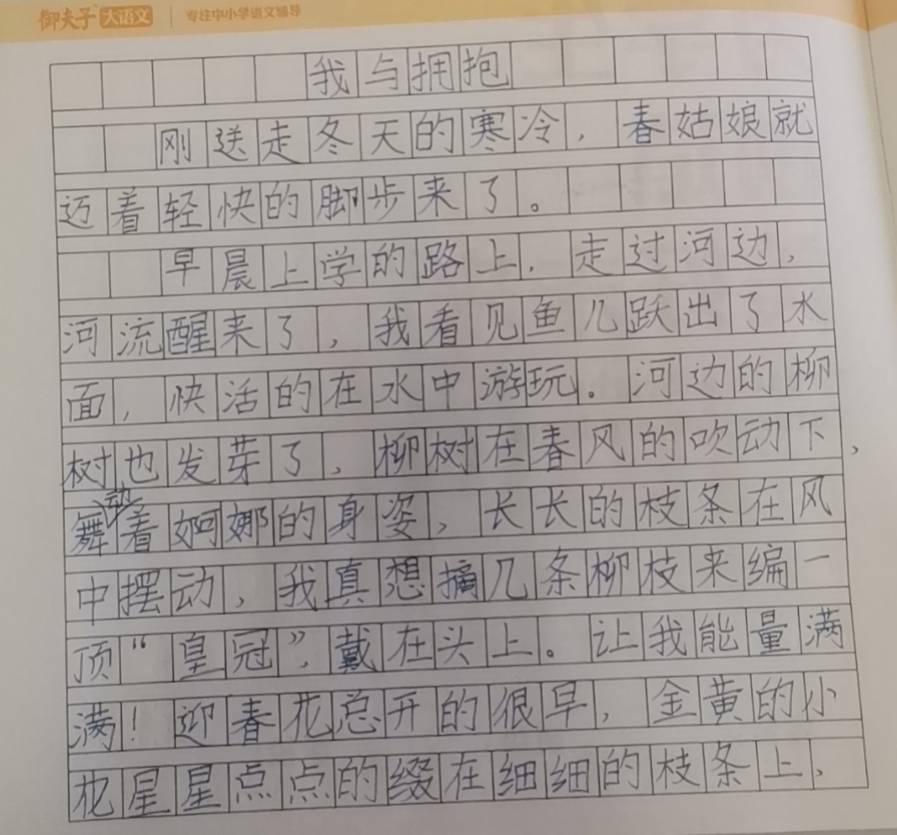 御夫子 大语文 专注中小学语文辅导
我与拥抱
刚送走冬天的寒冷，春姑娘就
迈着轻快的脚步来了。
早晨上学的路上，走过河边，
河流醒来了，我看见鱼儿跃出了水
面，快活的在水中游玩。河边的柳
树也发芽了，柳树在春风的吹动下，
舞动着婀娜的身姿，长长的枝条在风
中摆动，我真想摘几条柳枝来编一
顶“皇冠”，戴在头上。让我能量满
满！迎春花总开的很早，金黄的小
花星星点点的缀在细细的枝条上，